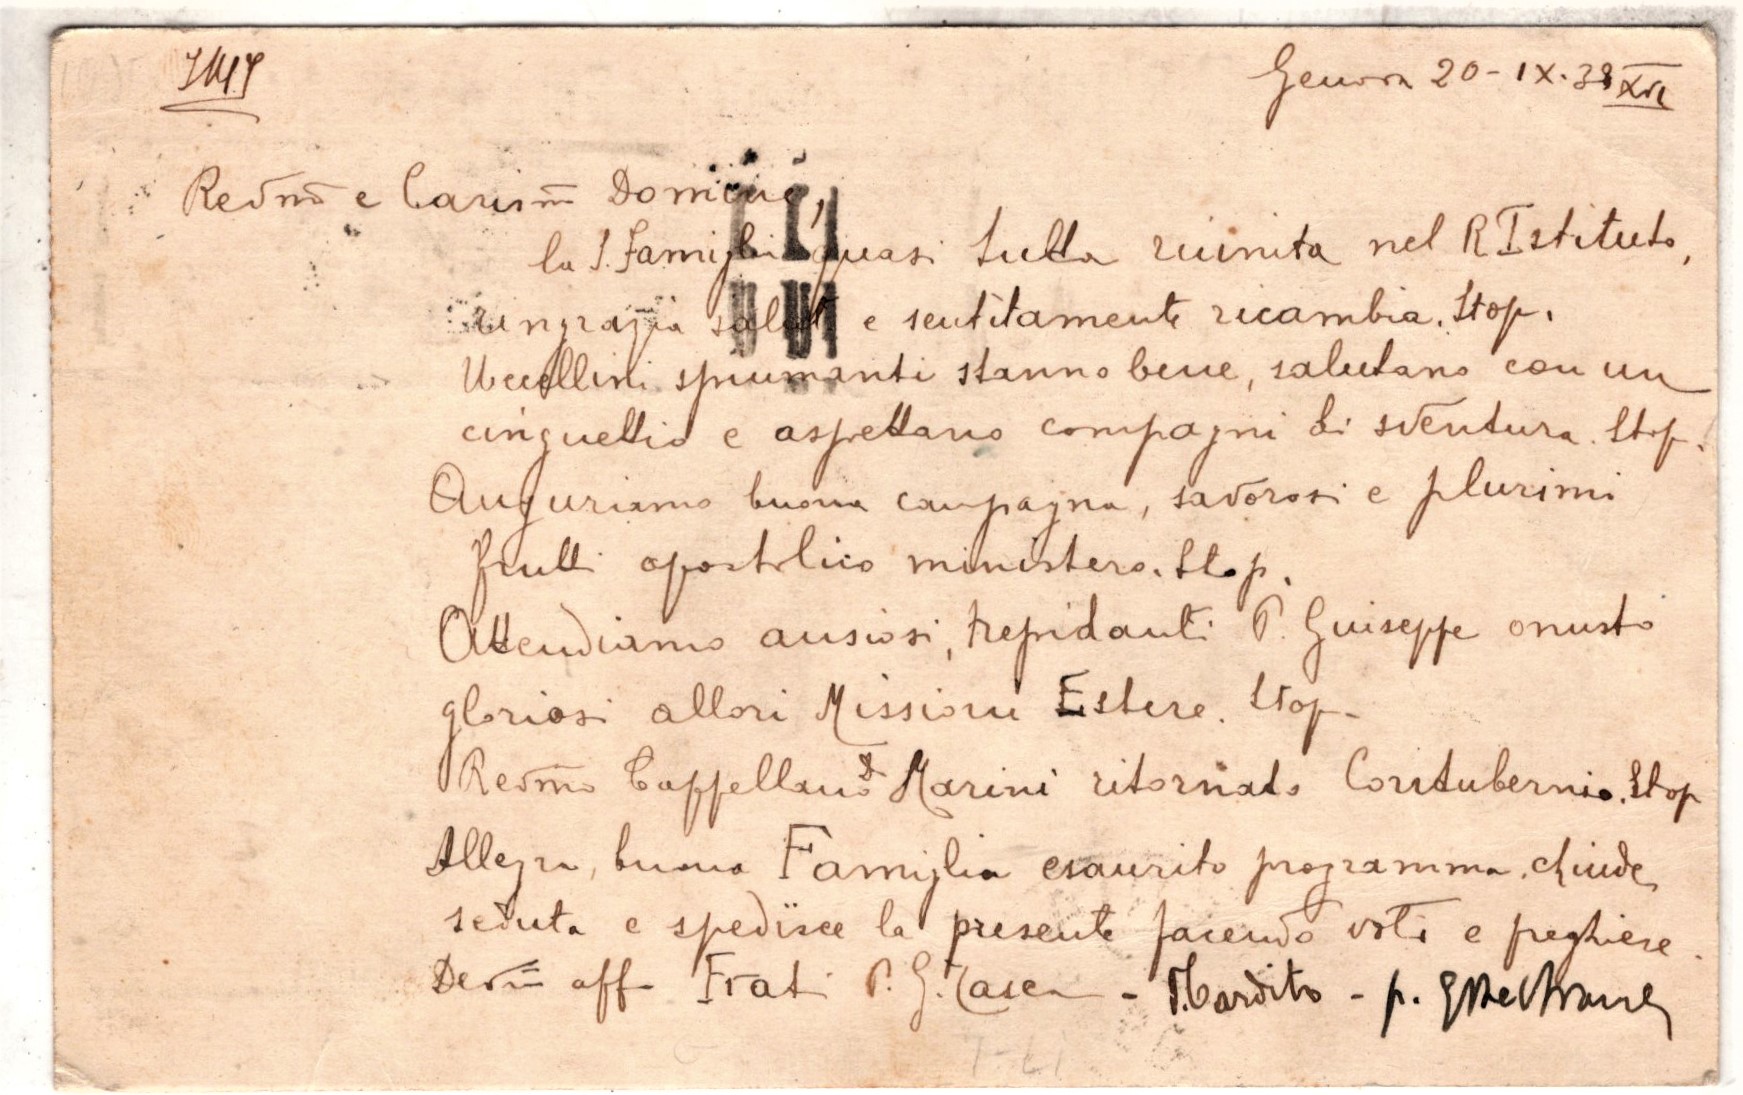 Genova 20-IX.38 XVI
Revmo e Carism Domine,
la S. Famiglia quasi tutta riunita nel R Istituto,
ringrazia saluti e sentitamente ricambia. Stop.
Uccellini spiumanti stanno bene, salutano con un
cinguettio e aspettano compagni di sventura. Stop.
Auguriamo buona campagna, savorosi e plurimi
frutti apostolico ministero. Stop.
Attendiamo ansiosi, trepidanti P. Guiseppe onusto
gloriosi allori Missioni Estere. Stop.
Revmo Cappellano D Marini ritornato Contubernio. Stop
Allegra, buona Famiglia esaurito programma, chiude
seduta e spedisce la presente facendo voti e preghiere.
Devm aff Frati P. G.